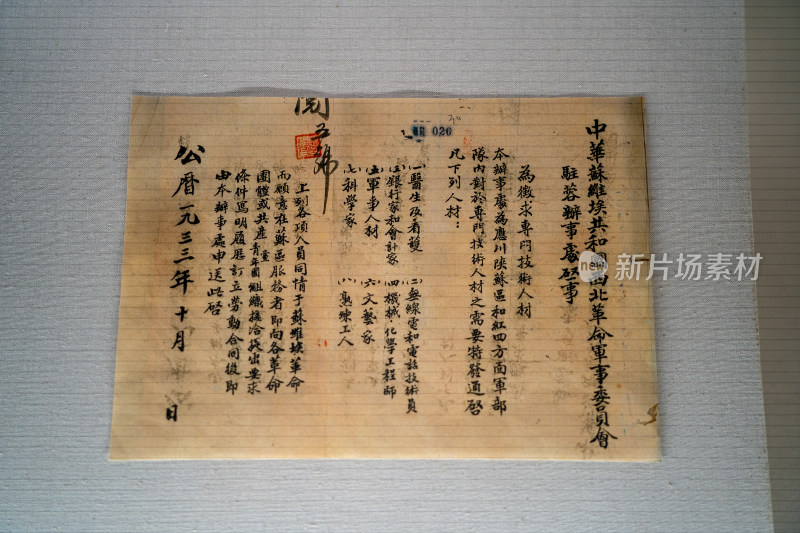 中華蘇維埃共和國西北革命軍事委員會
駐蓉辦事處啓事
為徵求專門技術人材
本辦事處為應川陝蘇區和紅四方面軍部
隊內對於專門技術人材之需要特發通啓
凡下列人材：
(一)醫生及看護 (二)無線電和電話技術員
(三)銀行家和會計家 (四)機械、化學工程師
(五)軍事人材 (六)文藝家
(七)科學家 (八)熟練工人
上列各項人員同情于蘇維埃革命
而願意在蘇區服務者即向各革命
團體或共產青年團組織接洽提出要求
條件寫明履歷訂立勞動合同後即
由本辦事處申送此啓
公曆一九三三年十月 日
五號
020
新片场素材